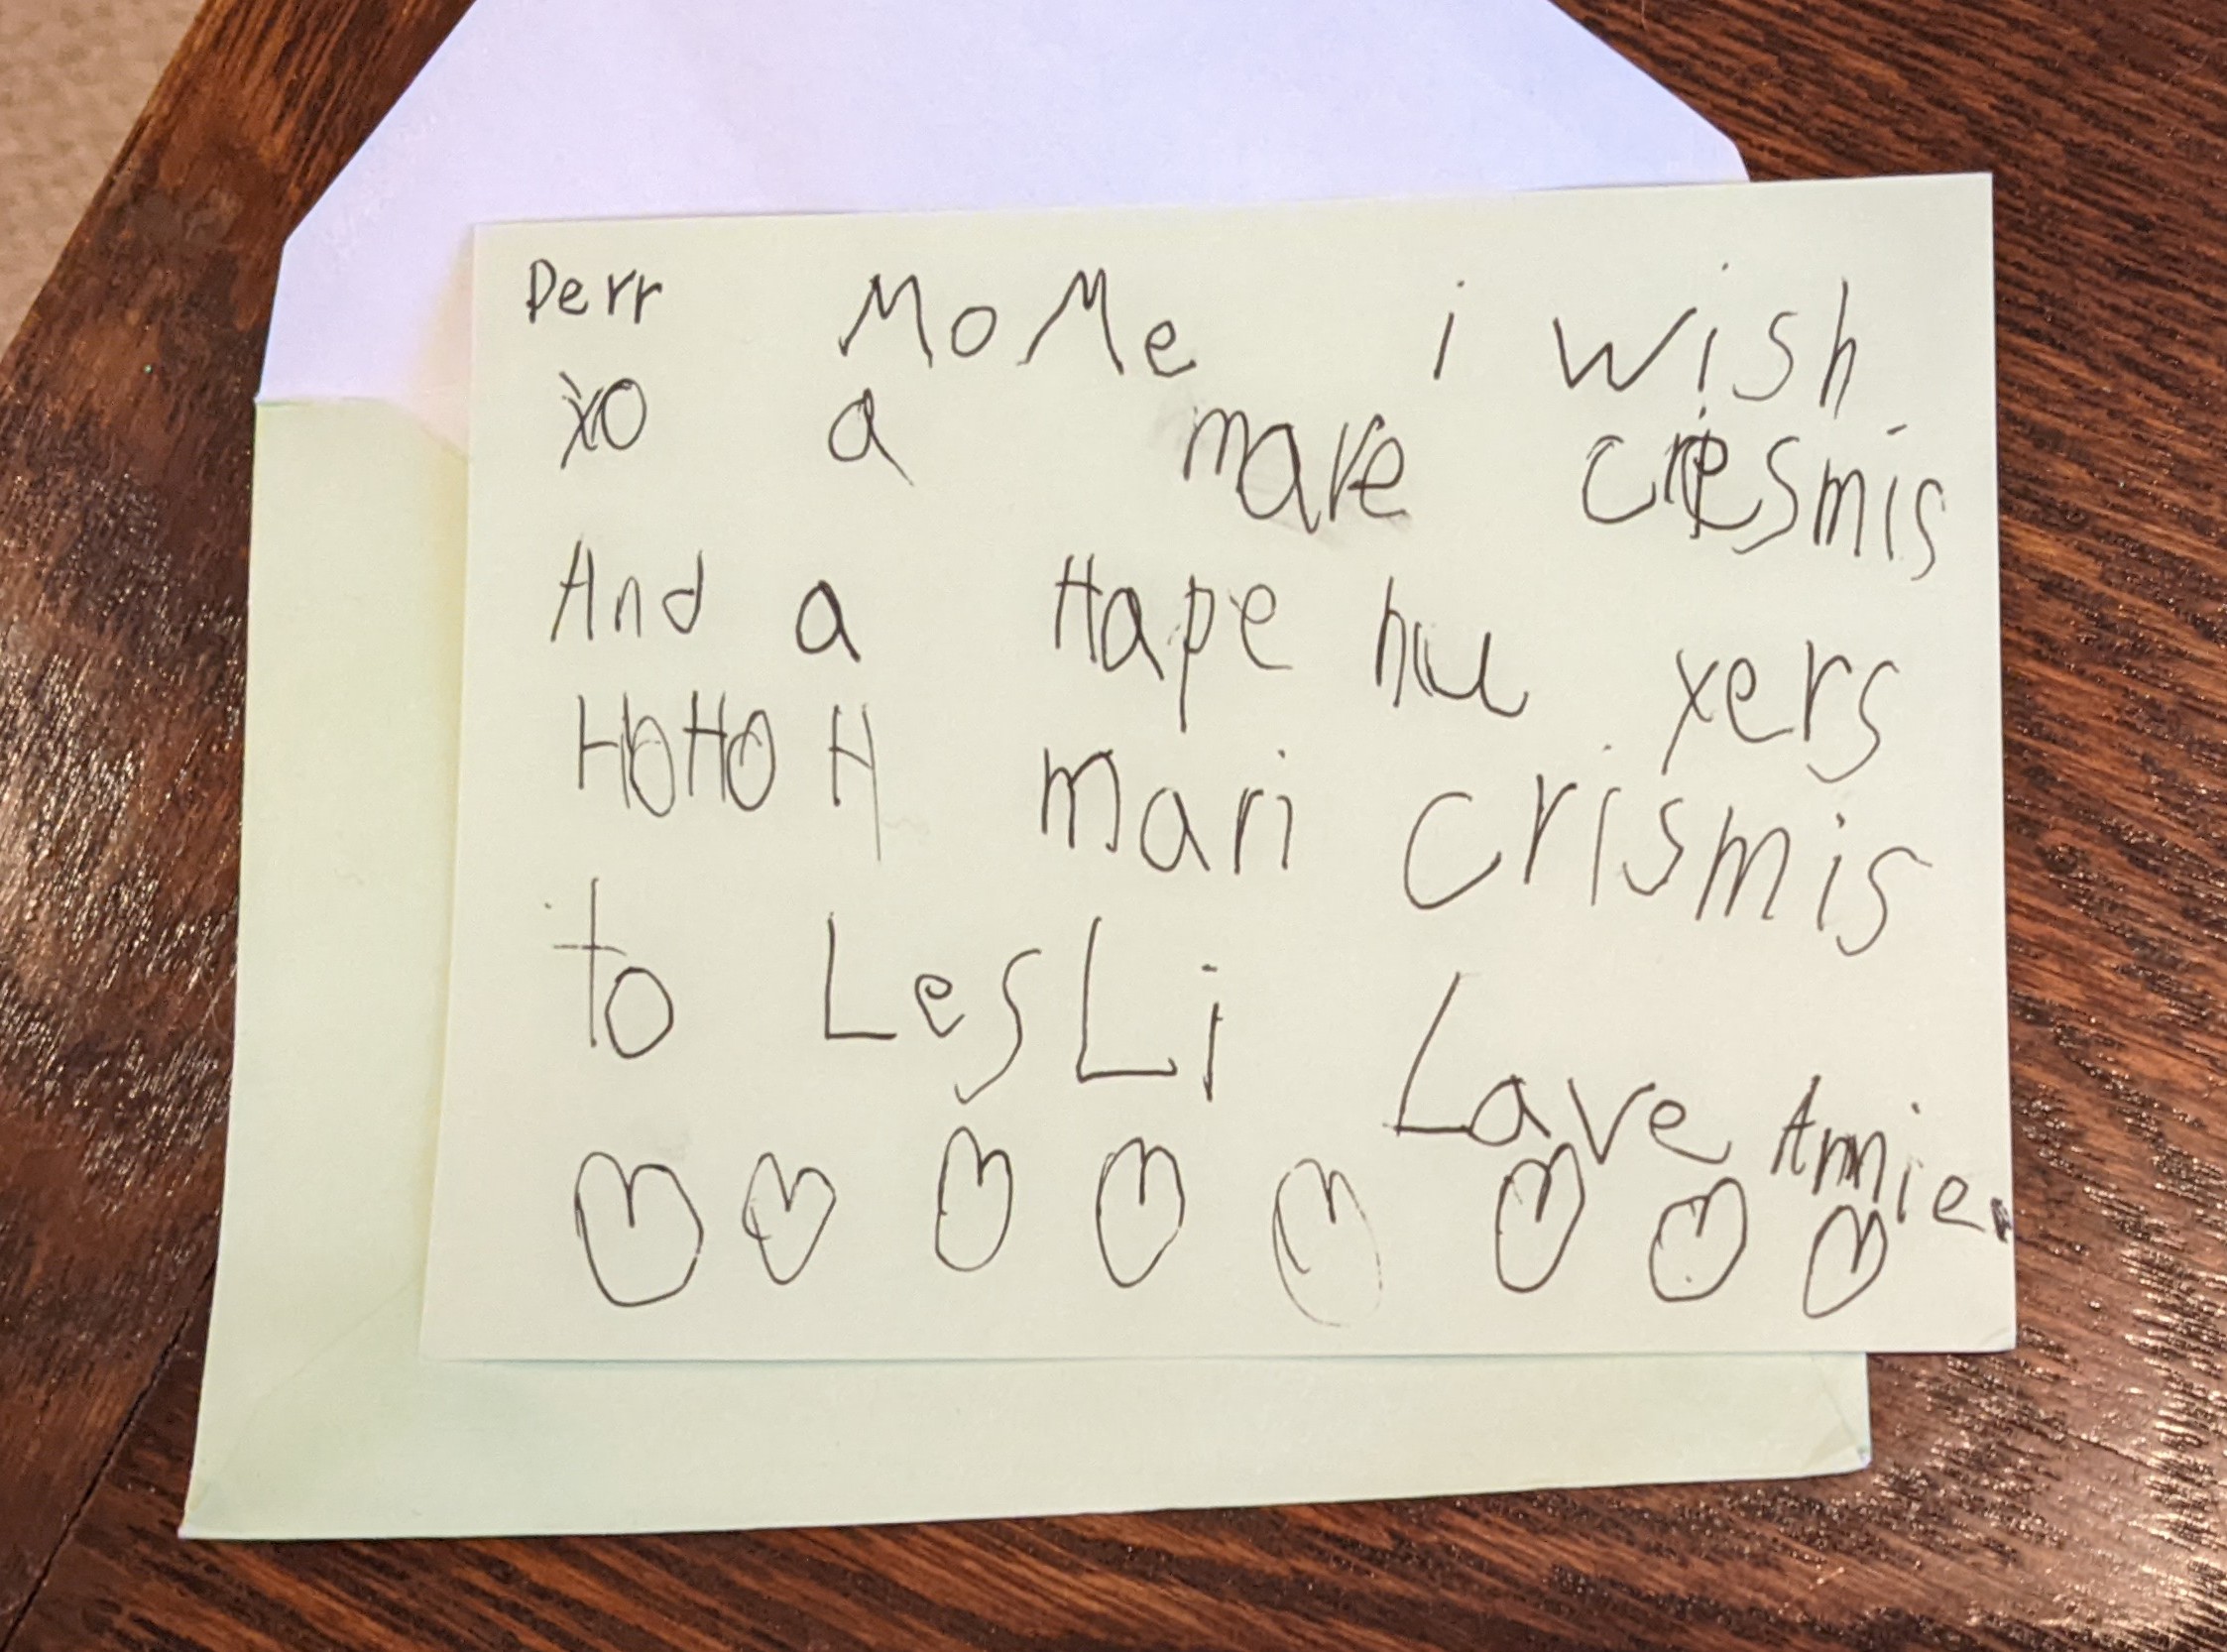 Derr MoMe i wish
xo a mare criesmis
And a Hape nuu xers
HoHO H mari crismis
to LesLi Lave Annie